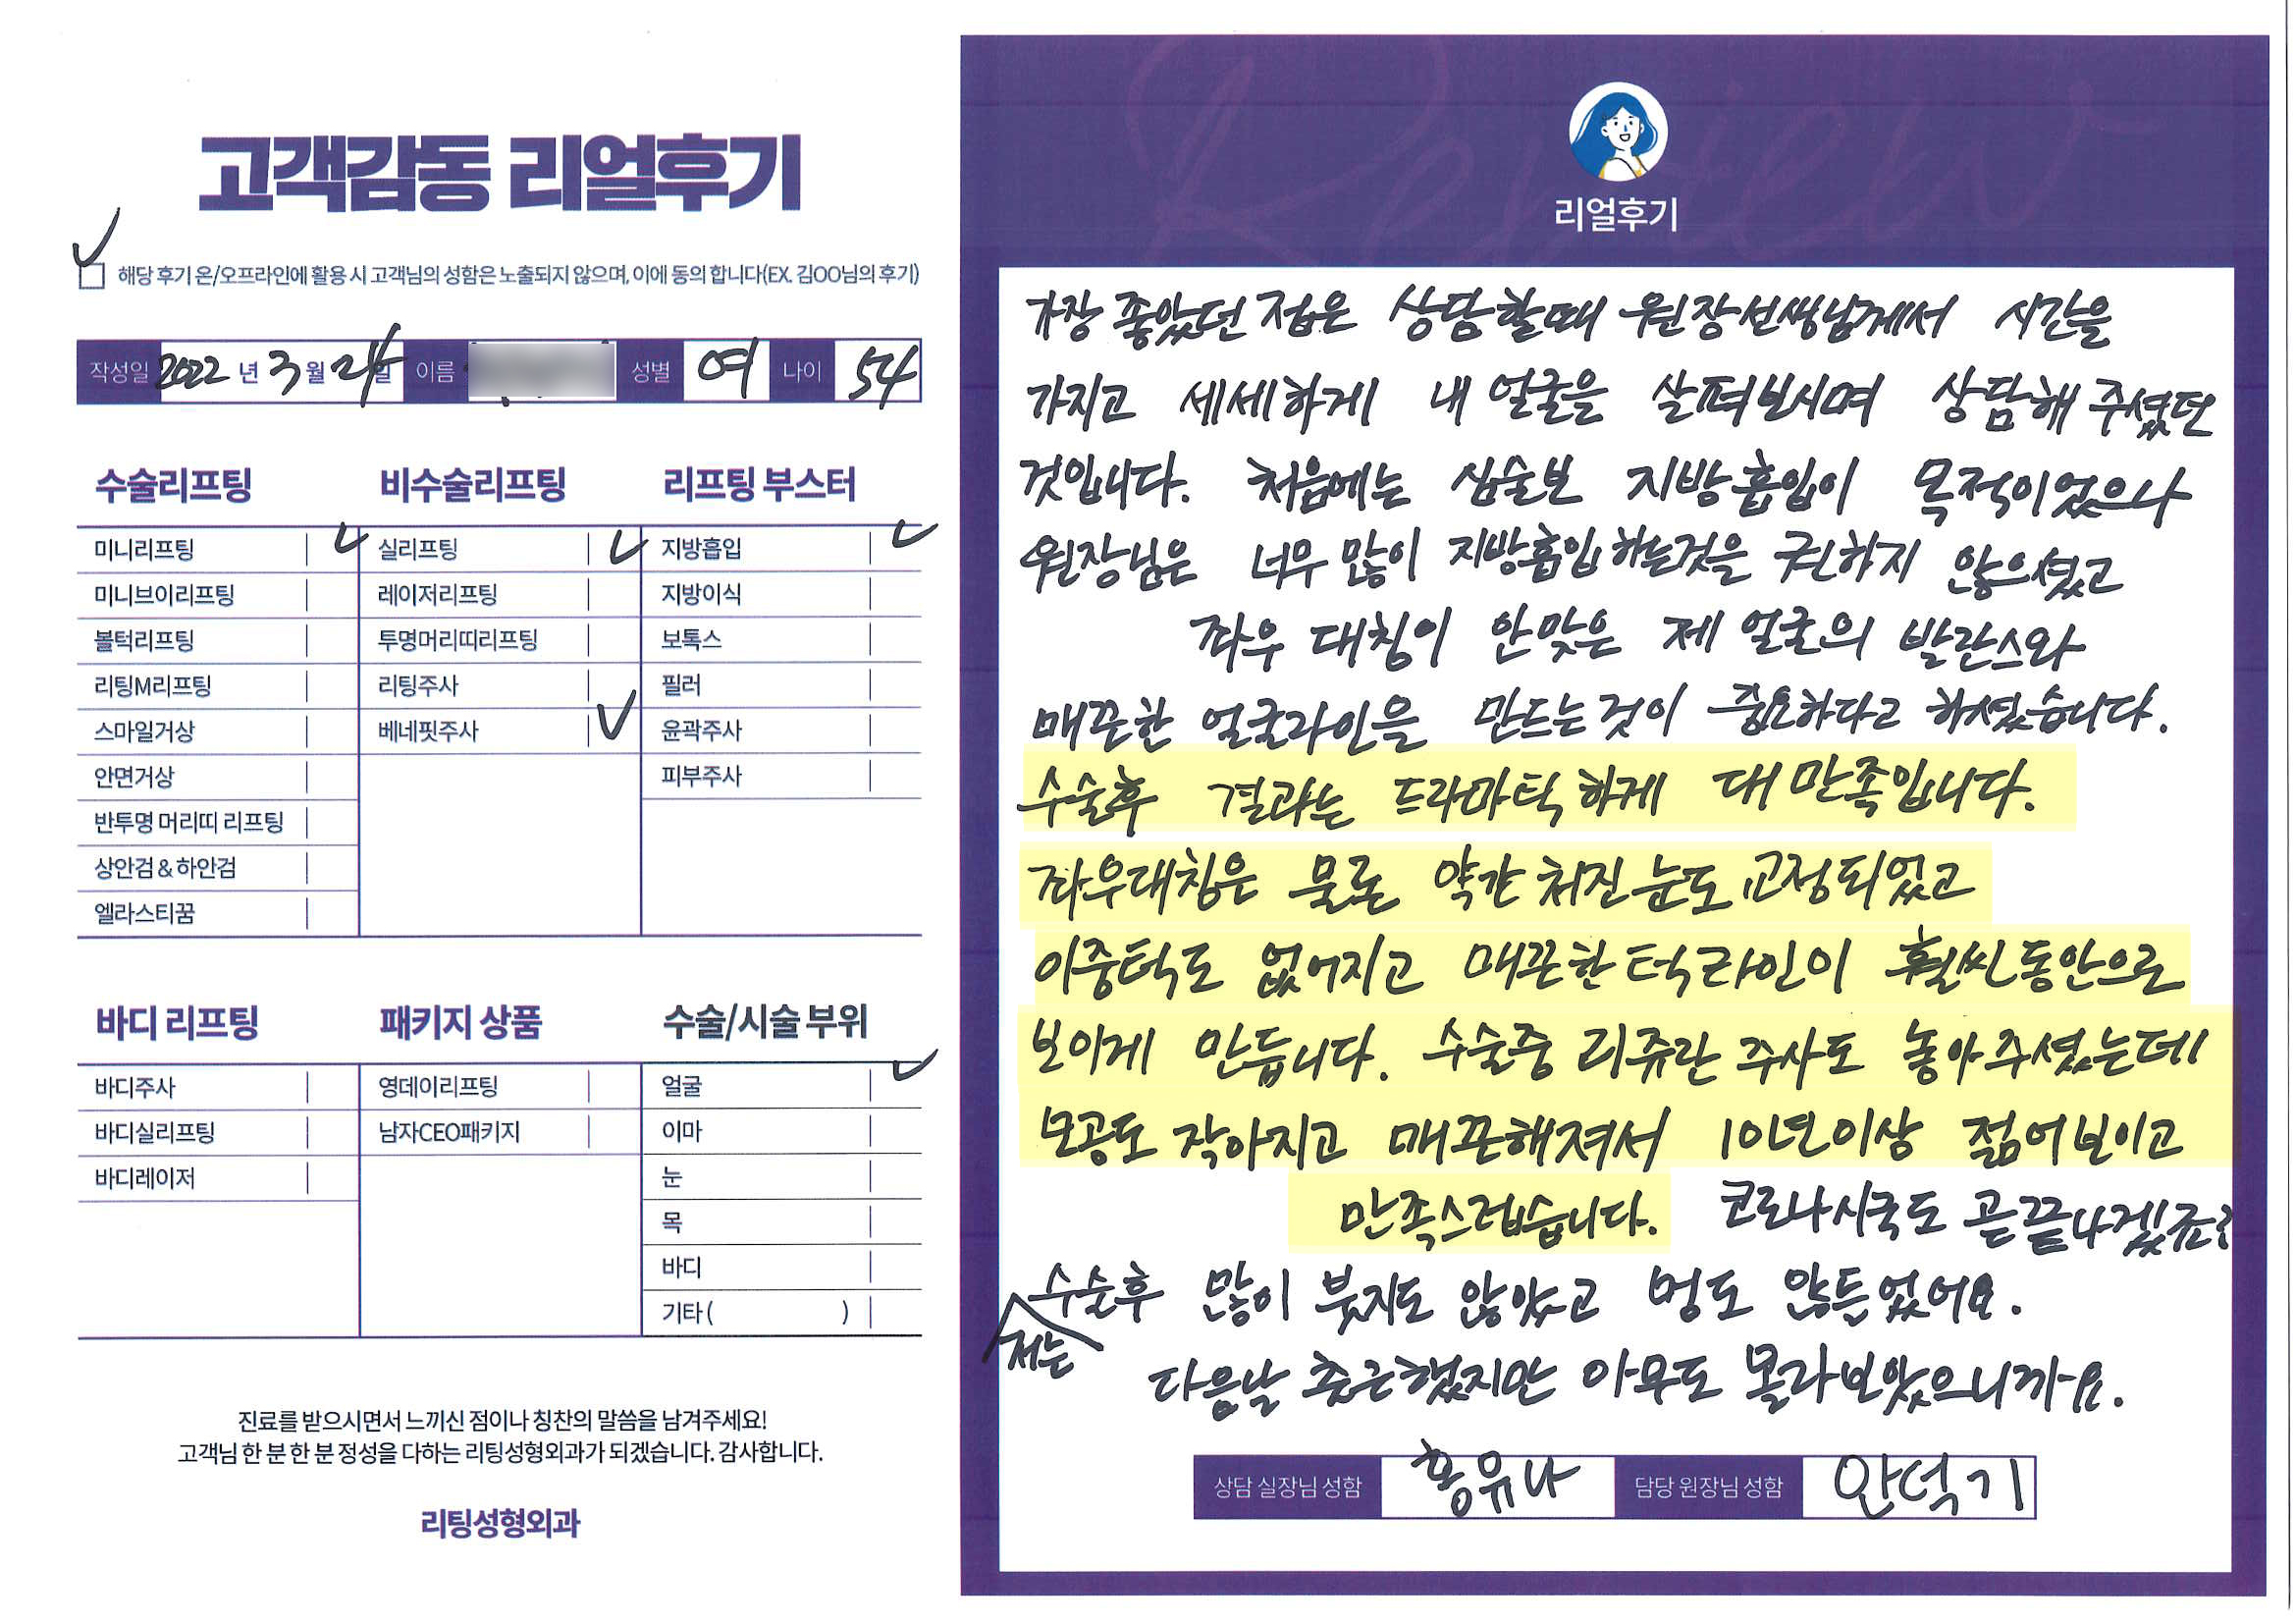 고객감동 리얼후기
해당 후기 온/오프라인에 활용 시 고객님의 성함은 노출되지 않으며, 이에 동의 합니다(EX. 김OO님의 후기)
작성일 2022 년 3 월 24 일 이름 성별 여 나이 54
수술리프팅
미니리프팅
미니브이리프팅
볼턱리프팅
리팅M리프팅
스마일거상
안면거상
반투명 머리띠 리프팅
상안검 & 하안검
엘라스티꿈
비수술리프팅
실리프팅
레이저리프팅
투명머리띠리프팅
리팅주사
베네핏주사
리프팅 부스터
지방흡입
지방이식
보톡스
필러
윤곽주사
피부주사
바디 리프팅
바디주사
바디실리프팅
바디레이저
패키지 상품
영데이리프팅
남자CEO패키지
수술/시술 부위
얼굴
이마
눈
목
바디
기타 ( )
진료를 받으시면서 느끼신 점이나 칭찬의 말씀을 남겨주세요!
고객님 한 분 한 분 정성을 다하는 리팅성형외과가 되겠습니다. 감사합니다.
리팅성형외과
Review
리얼후기
가장 좋았던 점은 상담할때 원장선생님께서 시간을
가지고 세세하게 내 얼굴을 살펴보시며 상담해 주셨던
것입니다. 처음에는 심술보 지방흡입이 목적이었으나
원장님은 너무 많이 지방흡입 하는것을 권하지 않으셨고
좌우 대칭이 안맞은 제 얼굴의 발란스와
매끈한 얼굴라인을 만드는것이 중요하다고 하셨습니다.
수술후 결과는 드라마틱하게 대 만족입니다.
좌우대칭은 물론 약간 처진 눈도 교정되었고
이중턱도 없어지고 매끈한 턱라인이 훨씬 동안으로
보이게 만듭니다. 수술중 리쥬란 주사도 놓아주셨는데
모공도 작아지고 매끈해져서 10년이상 젊어보이고
만족스럽습니다. 코로나시국도 곧 끝나겠죠?
저는 수술후 많이 붓지도 않았고 멍도 안들었어요.
다음날 출근했지만 아무도 몰라보았으니까요.
상담 실장님 성함 홍유나 담당 원장님 성함 안덕기